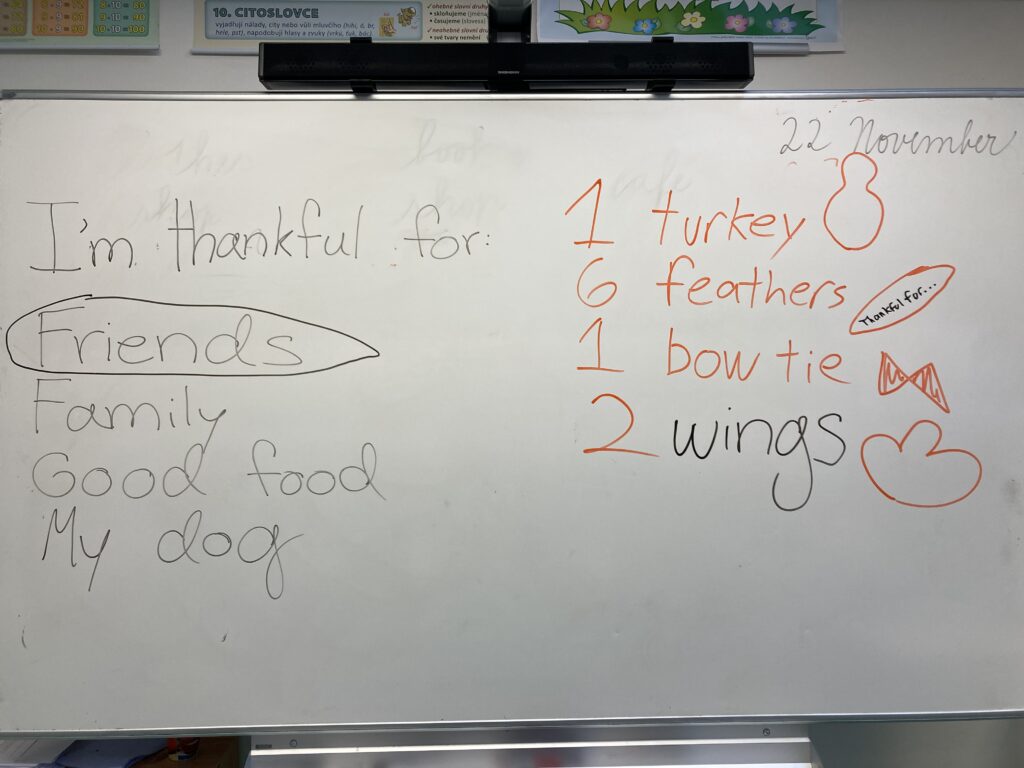 10. CITOSLOVCE
vyjadřují nálady, city nebo vůli mluvčího (hihi, ó, br,
hele, pst), napodobují hlasy a zvuky (vrků, ťuk, bác).
✓ohebné slovní druhy
• skloňujeme (jména
• časujeme (slovesa)
✓neohebné slovní d
• své tvary nemění
22 November
I'm thankful for:
Friends
Family
Good food
My dog
1 turkey
6 feathers
Thankful for...
1 bow tie
2 wings
the
book
shop
shop
café